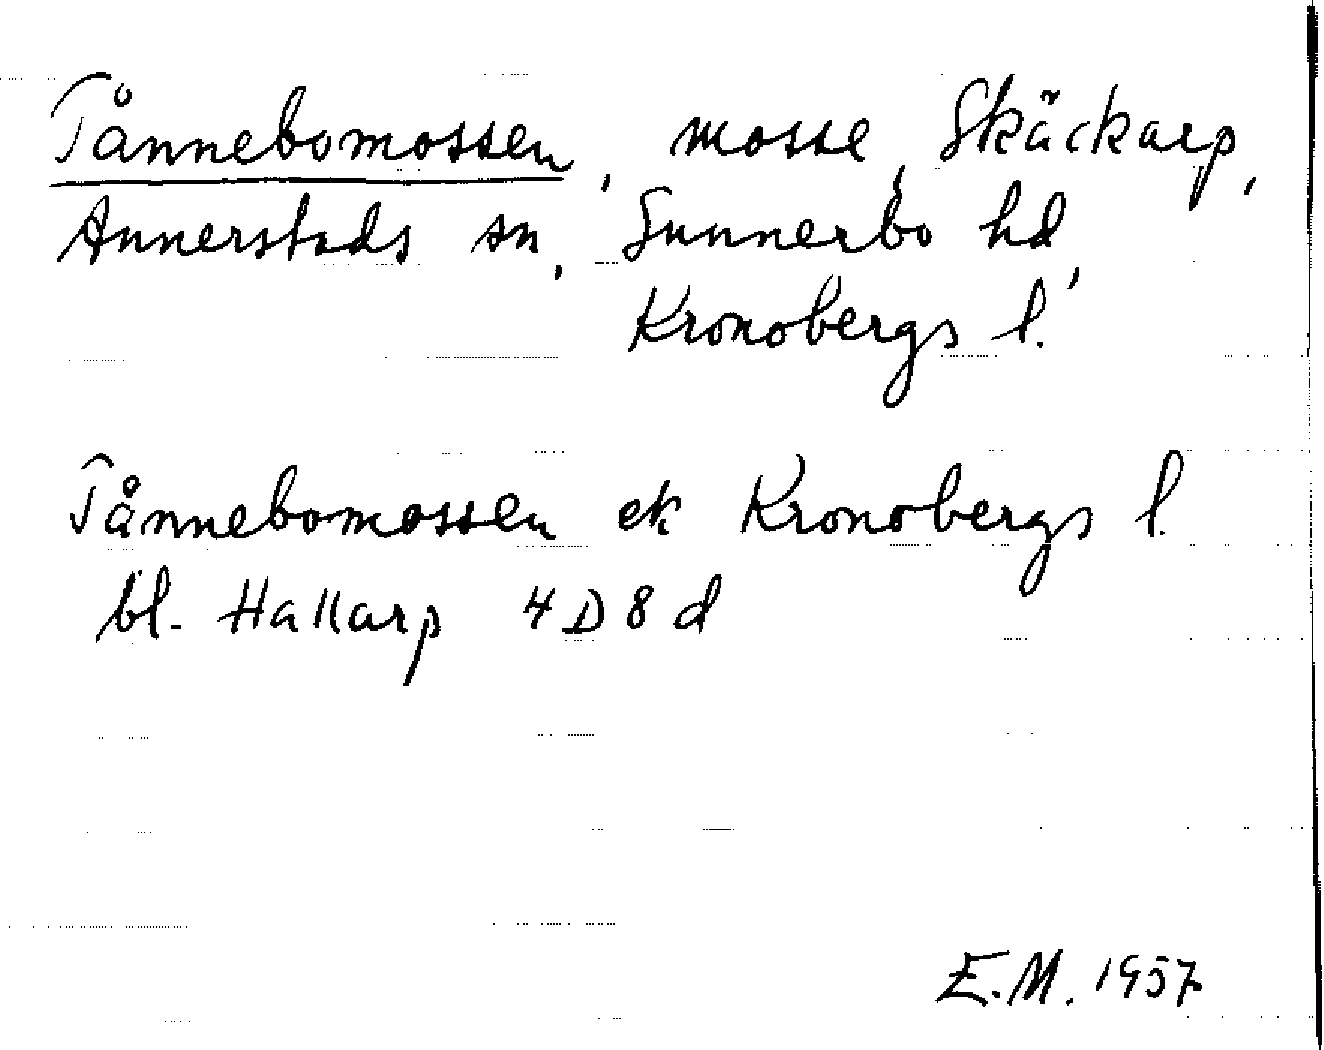 Tånnebomossen, mosse, Skäckarp,
Annerstads sn, Sunnerbo hd,
Kronobergs l.
Tånnebomossen ek Kronobergs l.
bl. Hallarp 4D8d
E.M. 1957